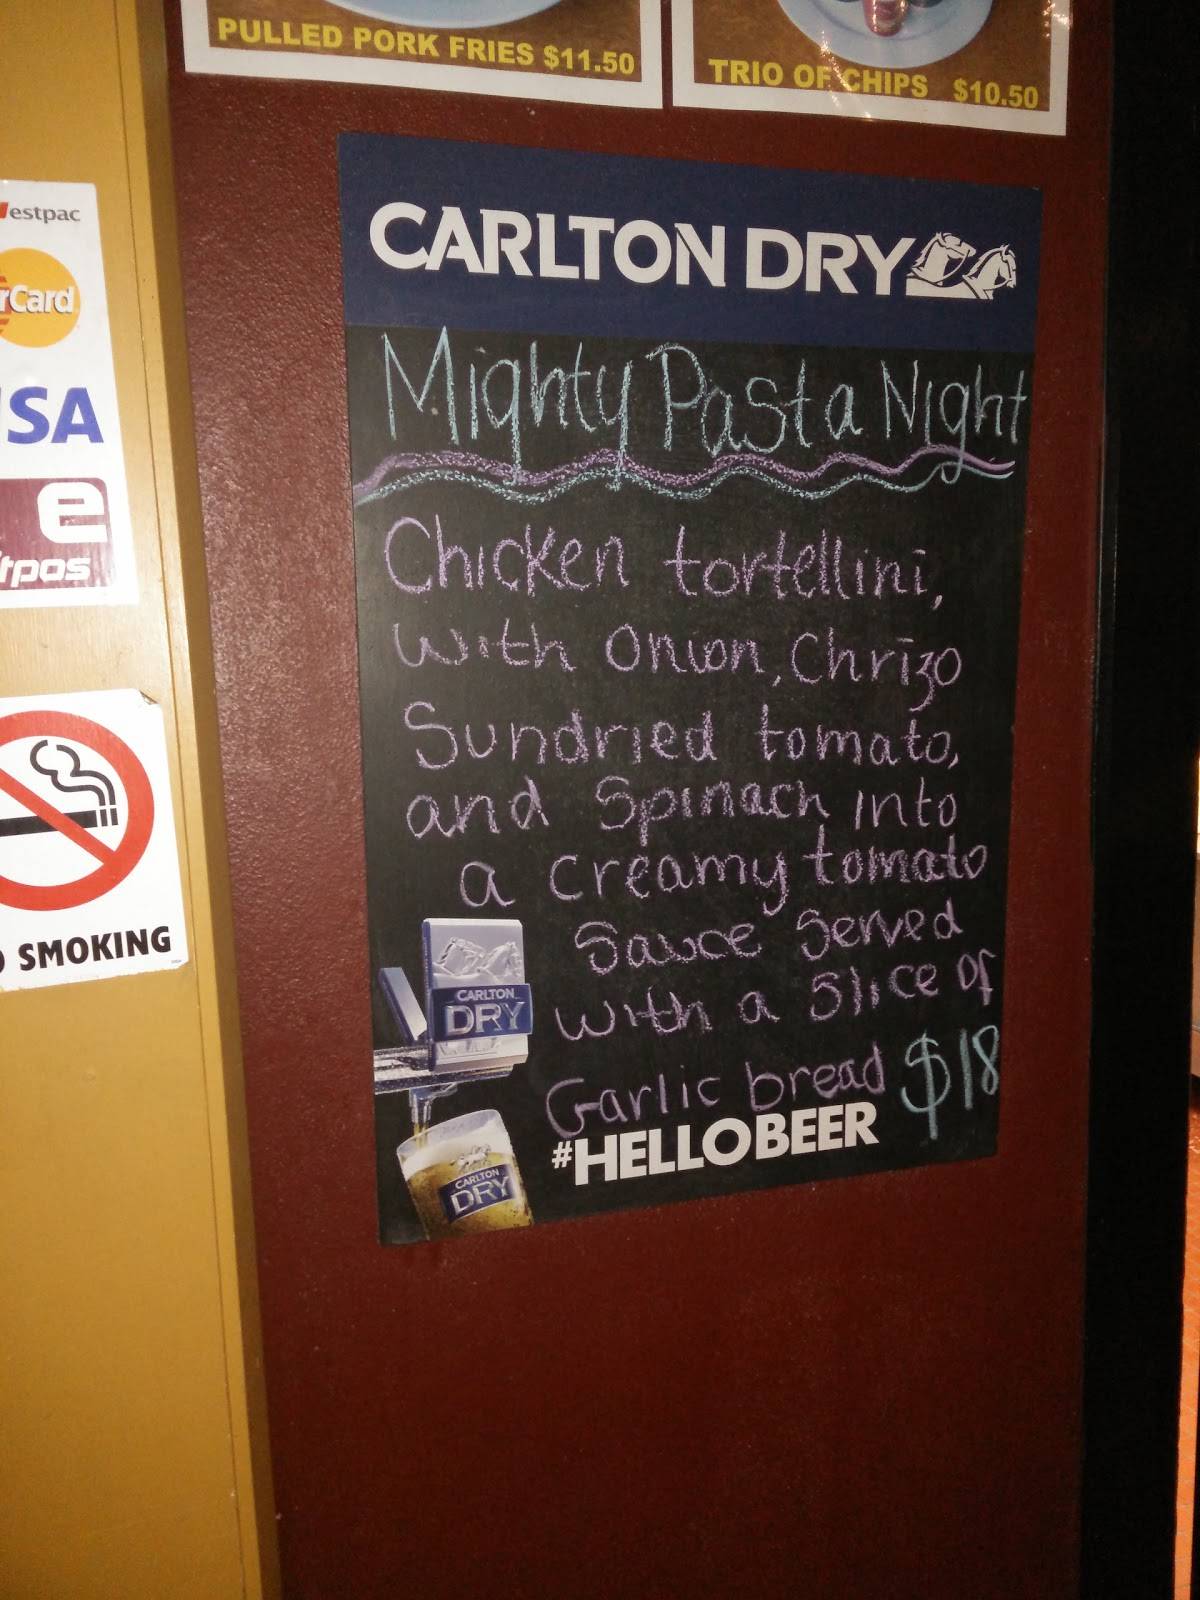 PULLED PORK FRIES $11.50
TRIO OF CHIPS $10.50
estpac
rCard
SA
e
tpos
SMOKING
CARLTON DRY
Mighty Pasta Night
Chicken tortellini,
with Onion, Chrizo
Sundried tomato,
and Spinach into
a creamy tomato
Sauce Served
with a Slice of
Garlic bread $18
CARLTON
DRY
#HELLOBEER
CARLTON
DRY